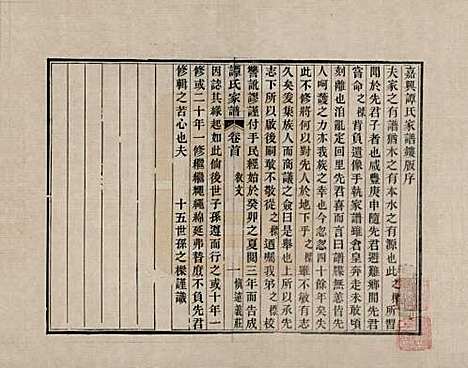 嘉興譚氏家譜鋟版序
夫家之有譜猶木之有本水之有源也此之樑所習
聞於先君子者也咸豐庚申隨先君避難鄉閒先君
嘗命之樑背負遺像手執家譜雖倉皇奔走未敢頃
刻離也洎亂定回里先君喜而示諭曰譜牒無恙皆先
人呵護之力本我族之幸也今忽忽四十餘年矣失
此不修將何以對先人於地下乎之樑雖不敢有志
久矣爰集族人而商議之僉曰是舉也上所以承先
志下所以啟後嗣敢不遵先人遺囑焉之樑校
讐訛謬謹付手民經始於癸卯之夏閱三年而告成
因誌其緣起如此後世子孫遵而行之或十年一
修或二十年一修繼繼繩繩綿延弗替庶不負先君
修輯之苦心也夫
十五世孫之樑謹識
譚氏家譜
卷首
敘文
一
慎遠義莊